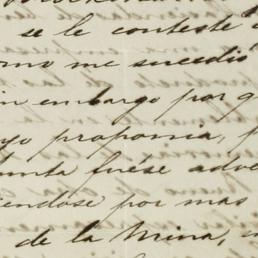 se le conteste
como me sucedió
sin embargo por q
yo proponia, p
unta fuése adve
iendose por mas
de la Mina,